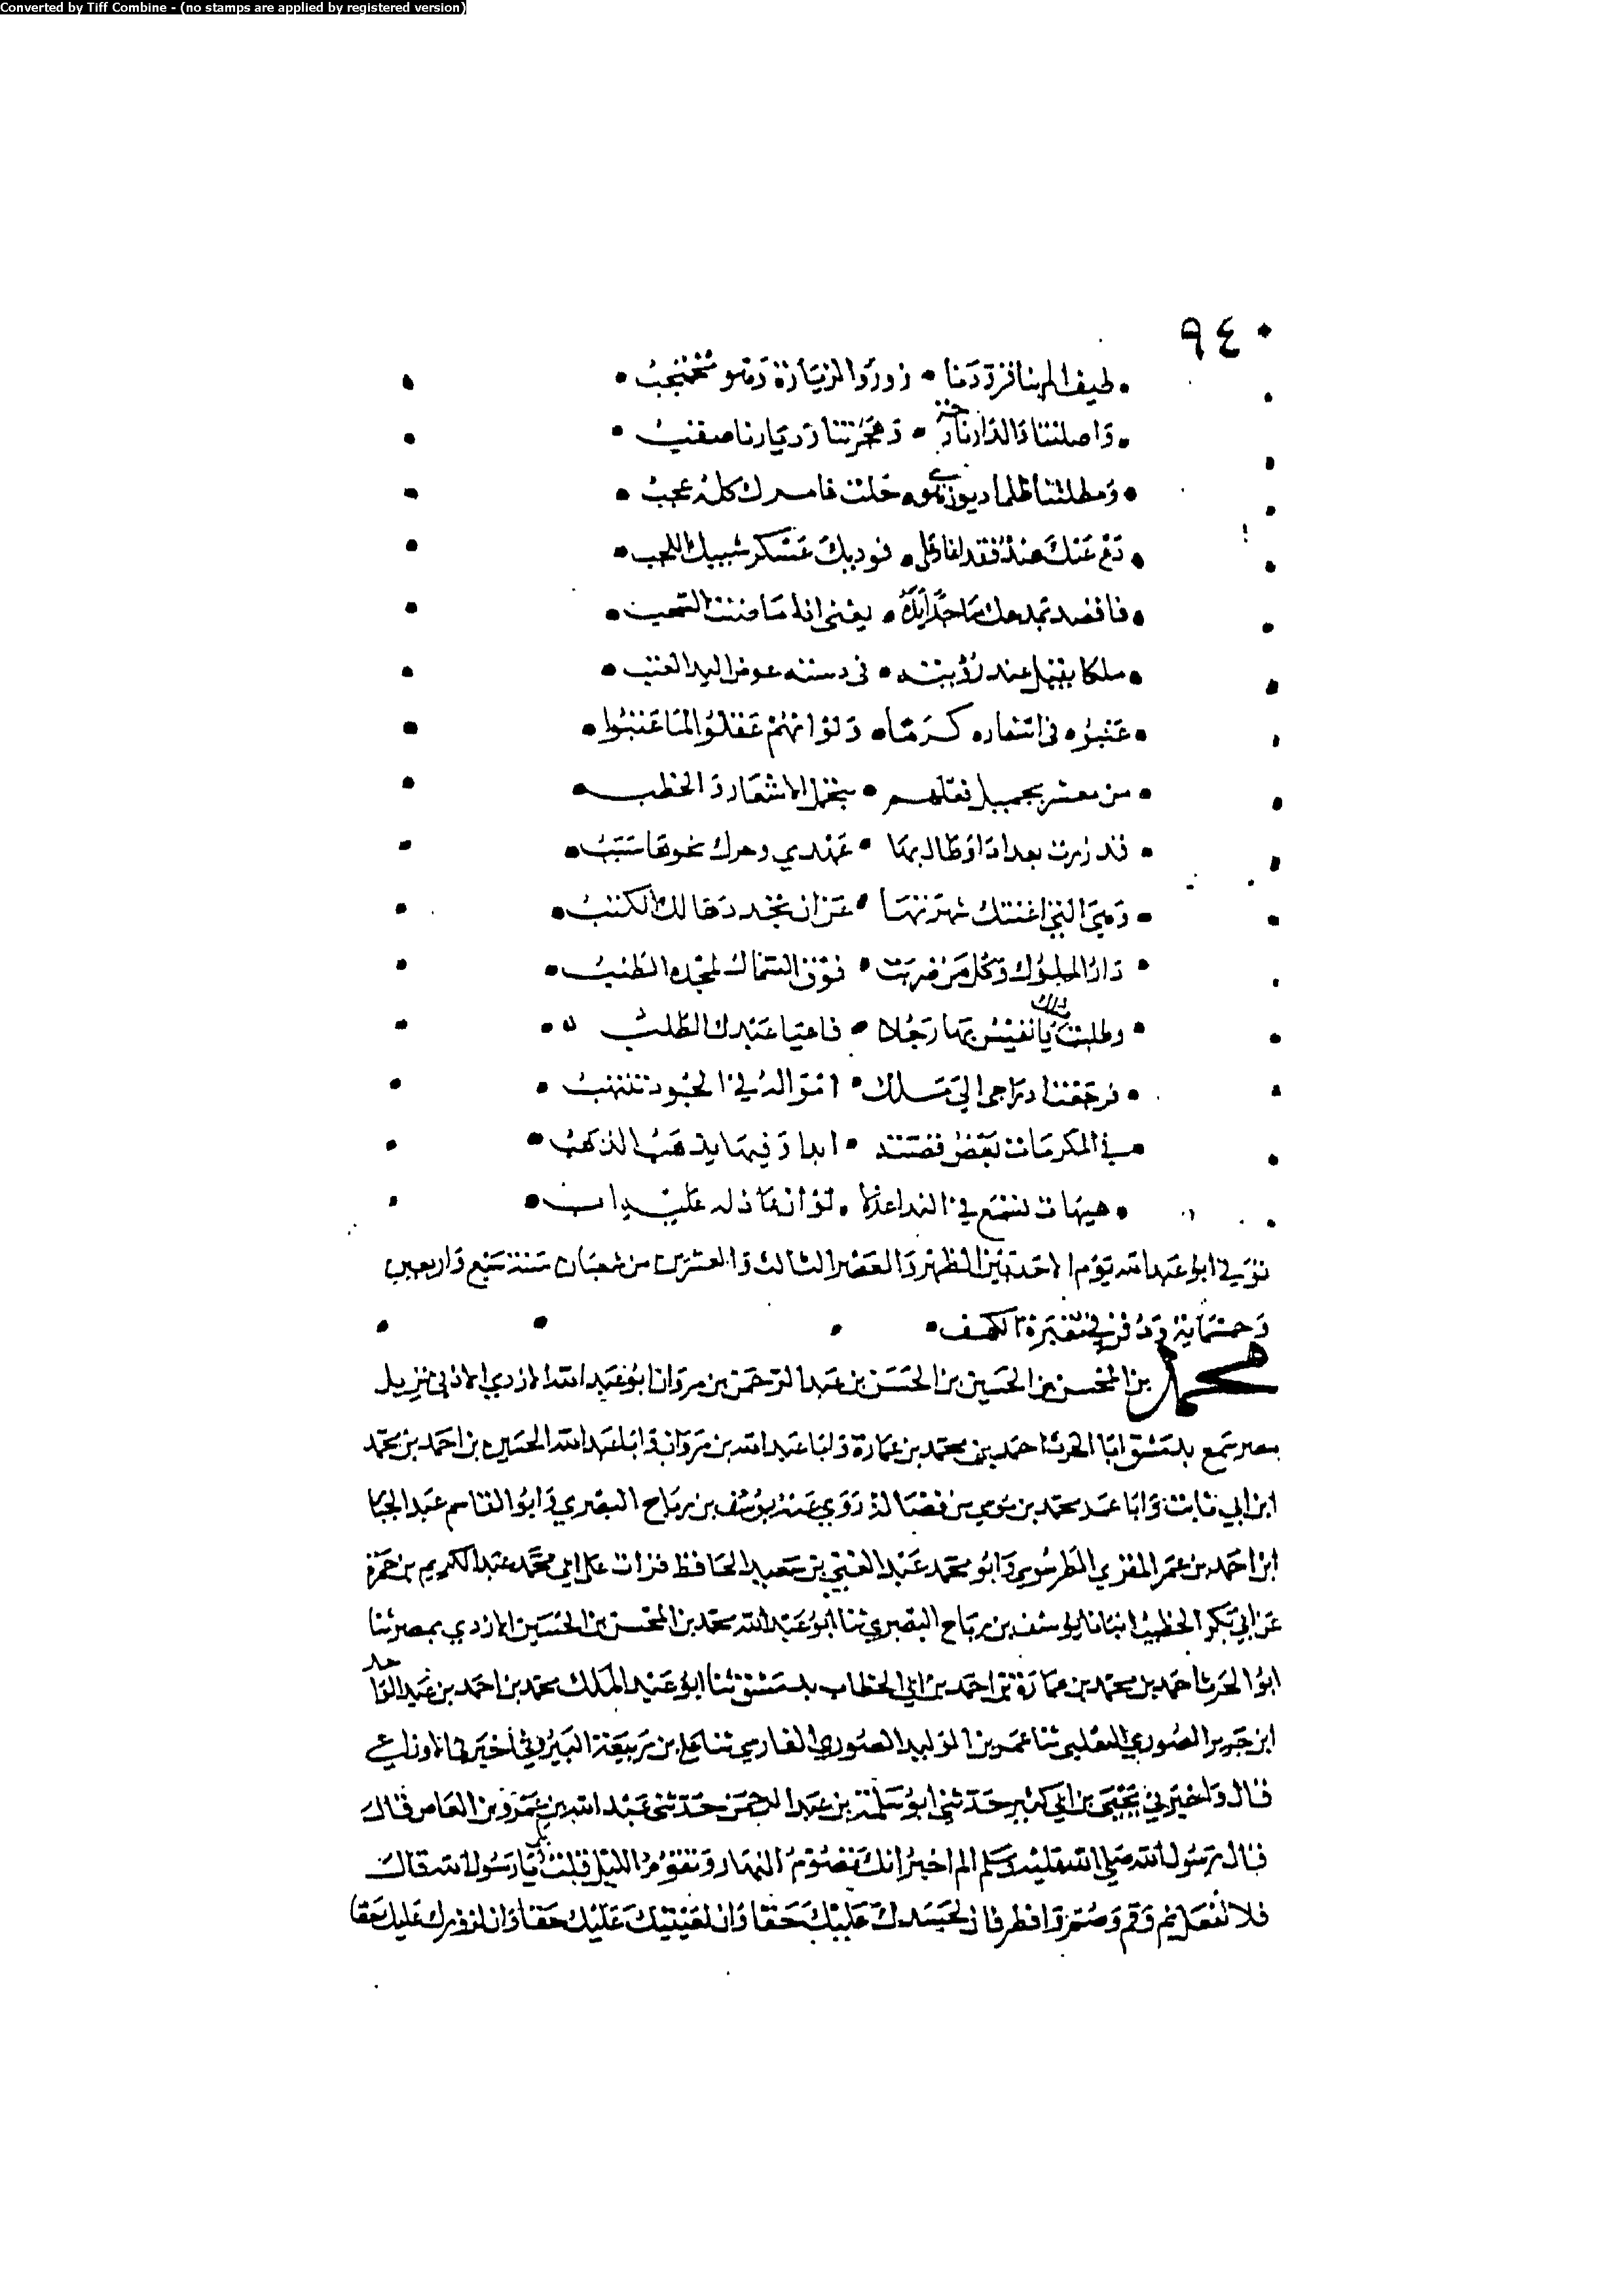 Converted by Tiff Combine - (no stamps are applied by registered version)
٩٤٠
طيف الم بنا فزودنا • زور الزيارة وهو محتجب
واصلتنا والدار نازحة • وهجرتنا وديارنا صقب
ومطلتنا ظلما ديون هوى حلت فامرك كله عجب
دع عنك هند فقد لفا • فوديك عسكر شيبك اللجب
فاقصد بمدحك ماجدا ابدا • يغني اذا ما ضنت السحب
ملكا يقبل عند رؤيته • في دسته عوض اليد العتب
عتبوه في اشعاره كرما • ولو انهم عقلوا لما عتبوا
من معشر بجميل فعلهم • تتجمل الاشعار والخطب
قد زرت بغدادا وطال بها • عهدي وحرك نحوها سبب
وهي التي اغنتك شهرتها • عن ان تجدد وصفا لك الكتب
دار الملوك وكل من ضربت • فوق السماك لمجده الطنب
وطلبت يا نفيس بها رجلا • فاعيا عندك الطلب
فرجعتنا دراجى الى ملك • امواله في الجود تنتهب
في المكرمات بعض فضته • ابدا وفيها يذهب الذهب
هيهات تسمع في الندا عذلا • لو ان عاذله عليه اب
توفي ابو عبد الله يوم الاحد بين الظهر والعصر الثالث والعشرين من شعبان سنة سبع واربعين
وخمسماية ودفن في مقبرة الكهف
محمد بن المحسن بن الحسين بن الحسن بن عبد الرحمن بن مروان ابو عبد الله الازدي الاذني نزيل
مصر سمع بدمشق ابا الحرث احمد بن محمد بن عمارة وابا عبد الله بن مروان وابا عبد الله الحسين بن احمد بن محمد
ابن ابي ثابت وابا عمر محمد بن موسى بن فضالة روى عنه يوسف بن رباح البصري وابو القاسم عبد الجبار
ابن احمد بن عمر المقري الطرسوسي وابو محمد عبد الغني بن سعيد الحافظ قرات على ابي محمد عبد الكريم بن حمزة
عن ابي بكر الخطيب انبانا يوسف بن رباح البصري ثنا ابو عبد الله محمد بن المحسن بن الحسين الازدي بمصر ثنا
ابو الحرث احمد بن محمد بن عمارة بن احمد بن ابي الخطاب بدمشق ثنا ابو عبد الملك محمد بن احمد بن عبد الواحد
ابن جرير الصوري التغلبي ثنا عمر بن الوليد الصوري الفارسي ثنا علي بن ربيعة البيروتي اخبرني الاوزاعي
قال واخبرني يحيى بن ابي كثير حدثني ابو سلمة بن عبد الرحمن حدثني عبد الله بن عمرو بن العاص قال
قال رسول الله صلى الله عليه وسلم الم اخبر انك تصوم النهار وتقوم الليل قلت بلى يا رسول الله قال
فلا تفعل نم وقم وصم وافطر فان لجسدك عليك حقا وان لعينيك عليك حقا وان لزورك عليك حقا